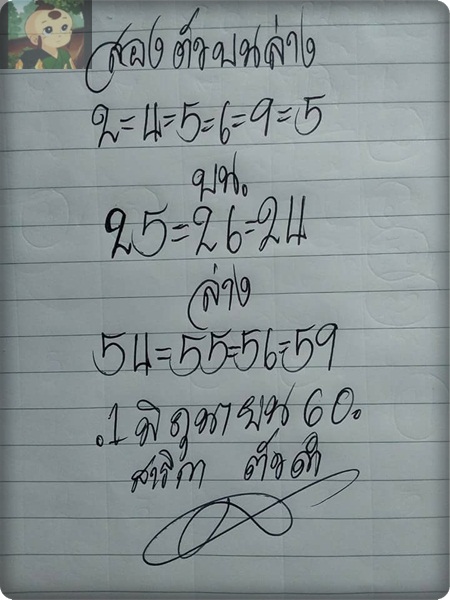 สองตัวบนล่าง
2=4=5=6=9=5
บน.
25=26=24
ล่าง
54=55=56=59
.1 มิถุนายน 60.
สาริกา ตัวดำ